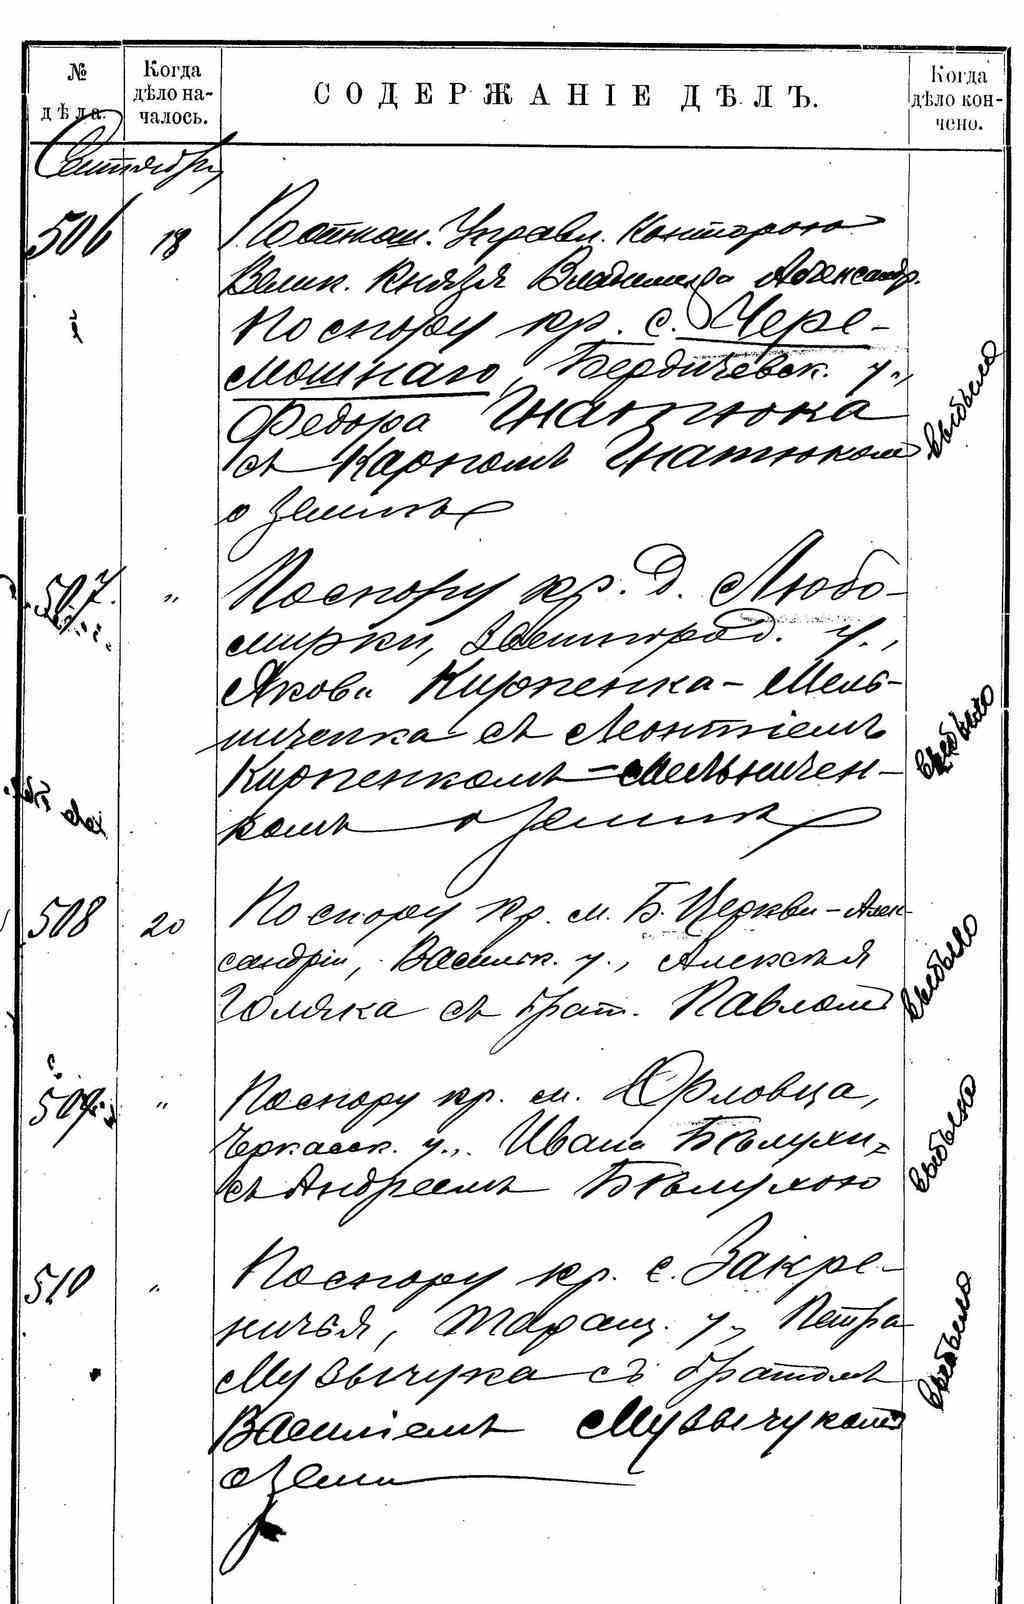 № дѣла.
Когда дѣло началось.
СОДЕРЖАНІЕ ДѢЛЪ.
Когда дѣло кончено.
Сентябрь
506 18 По отнош. Управл. Конторою
Велик. Князя Владимира Александр.
По спору кр. с. Чере-
мошнаго, Бердичевск. у.,
Федора Гнатюка
съ Карпомъ Гнатюком
о землѣ
выбыло
507. " По спору кр. д. Любо-
мирки, Звенигород. у.,
Якова Кирпенка-Мель-
ниченка съ Леонтіемъ
Кирпенкомъ-Мельничен-
комъ о землѣ
выбыло
508 20 По спору кр. м. Б. Церкви-Алек-
сандріи, Васильк. у., Алексѣя
Голяка съ брат. Павломъ
выбыло
509 " По спору кр. м. Орловца,
Черкасск. у., Ивана Бѣлухи
съ Андреемъ Бѣлухою
выбыло
510 " По спору кр. с. Закре-
ничья, Таращ. у., Петра
Музычука съ братомъ
Василіемъ Музычукомъ
о земл
выбыло